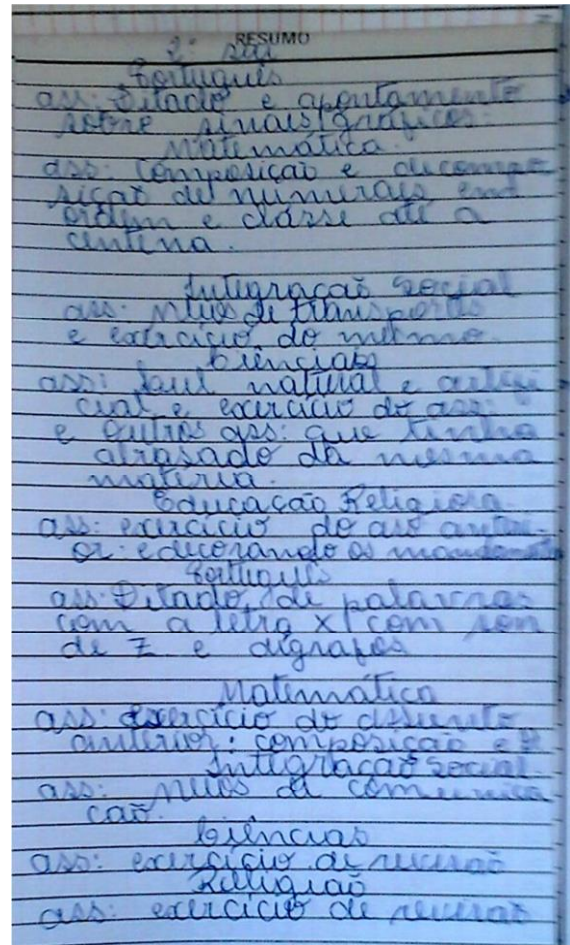 RESUMO
2ª
Português
ass: Ditado e apontamento
sobre sinais gráficos.
Matemática.
ass: Composição e decompo
sição de numerais em
ordem e classe até a
centena.
Integração Social
ass: meios de transportes
e exercício do mesmo.
Ciências
ass: natural e artifi
cial e exercício do ass:
e outros ass: que tinha
atrasado da mesma
matéria.
Educação Religiosa.
ass: exercício do ass anteri-
or: decorando os mandamentos
Português
ass: Ditado de palavras
com a letra X com som
de Z e dígrafos
Matemática
ass: exercício do assunto
anterior: composição e
Integração Social.
ass: meios de comunica
ção.
Ciências
ass: exercício de revisão
Religião
ass: exercício de revisão